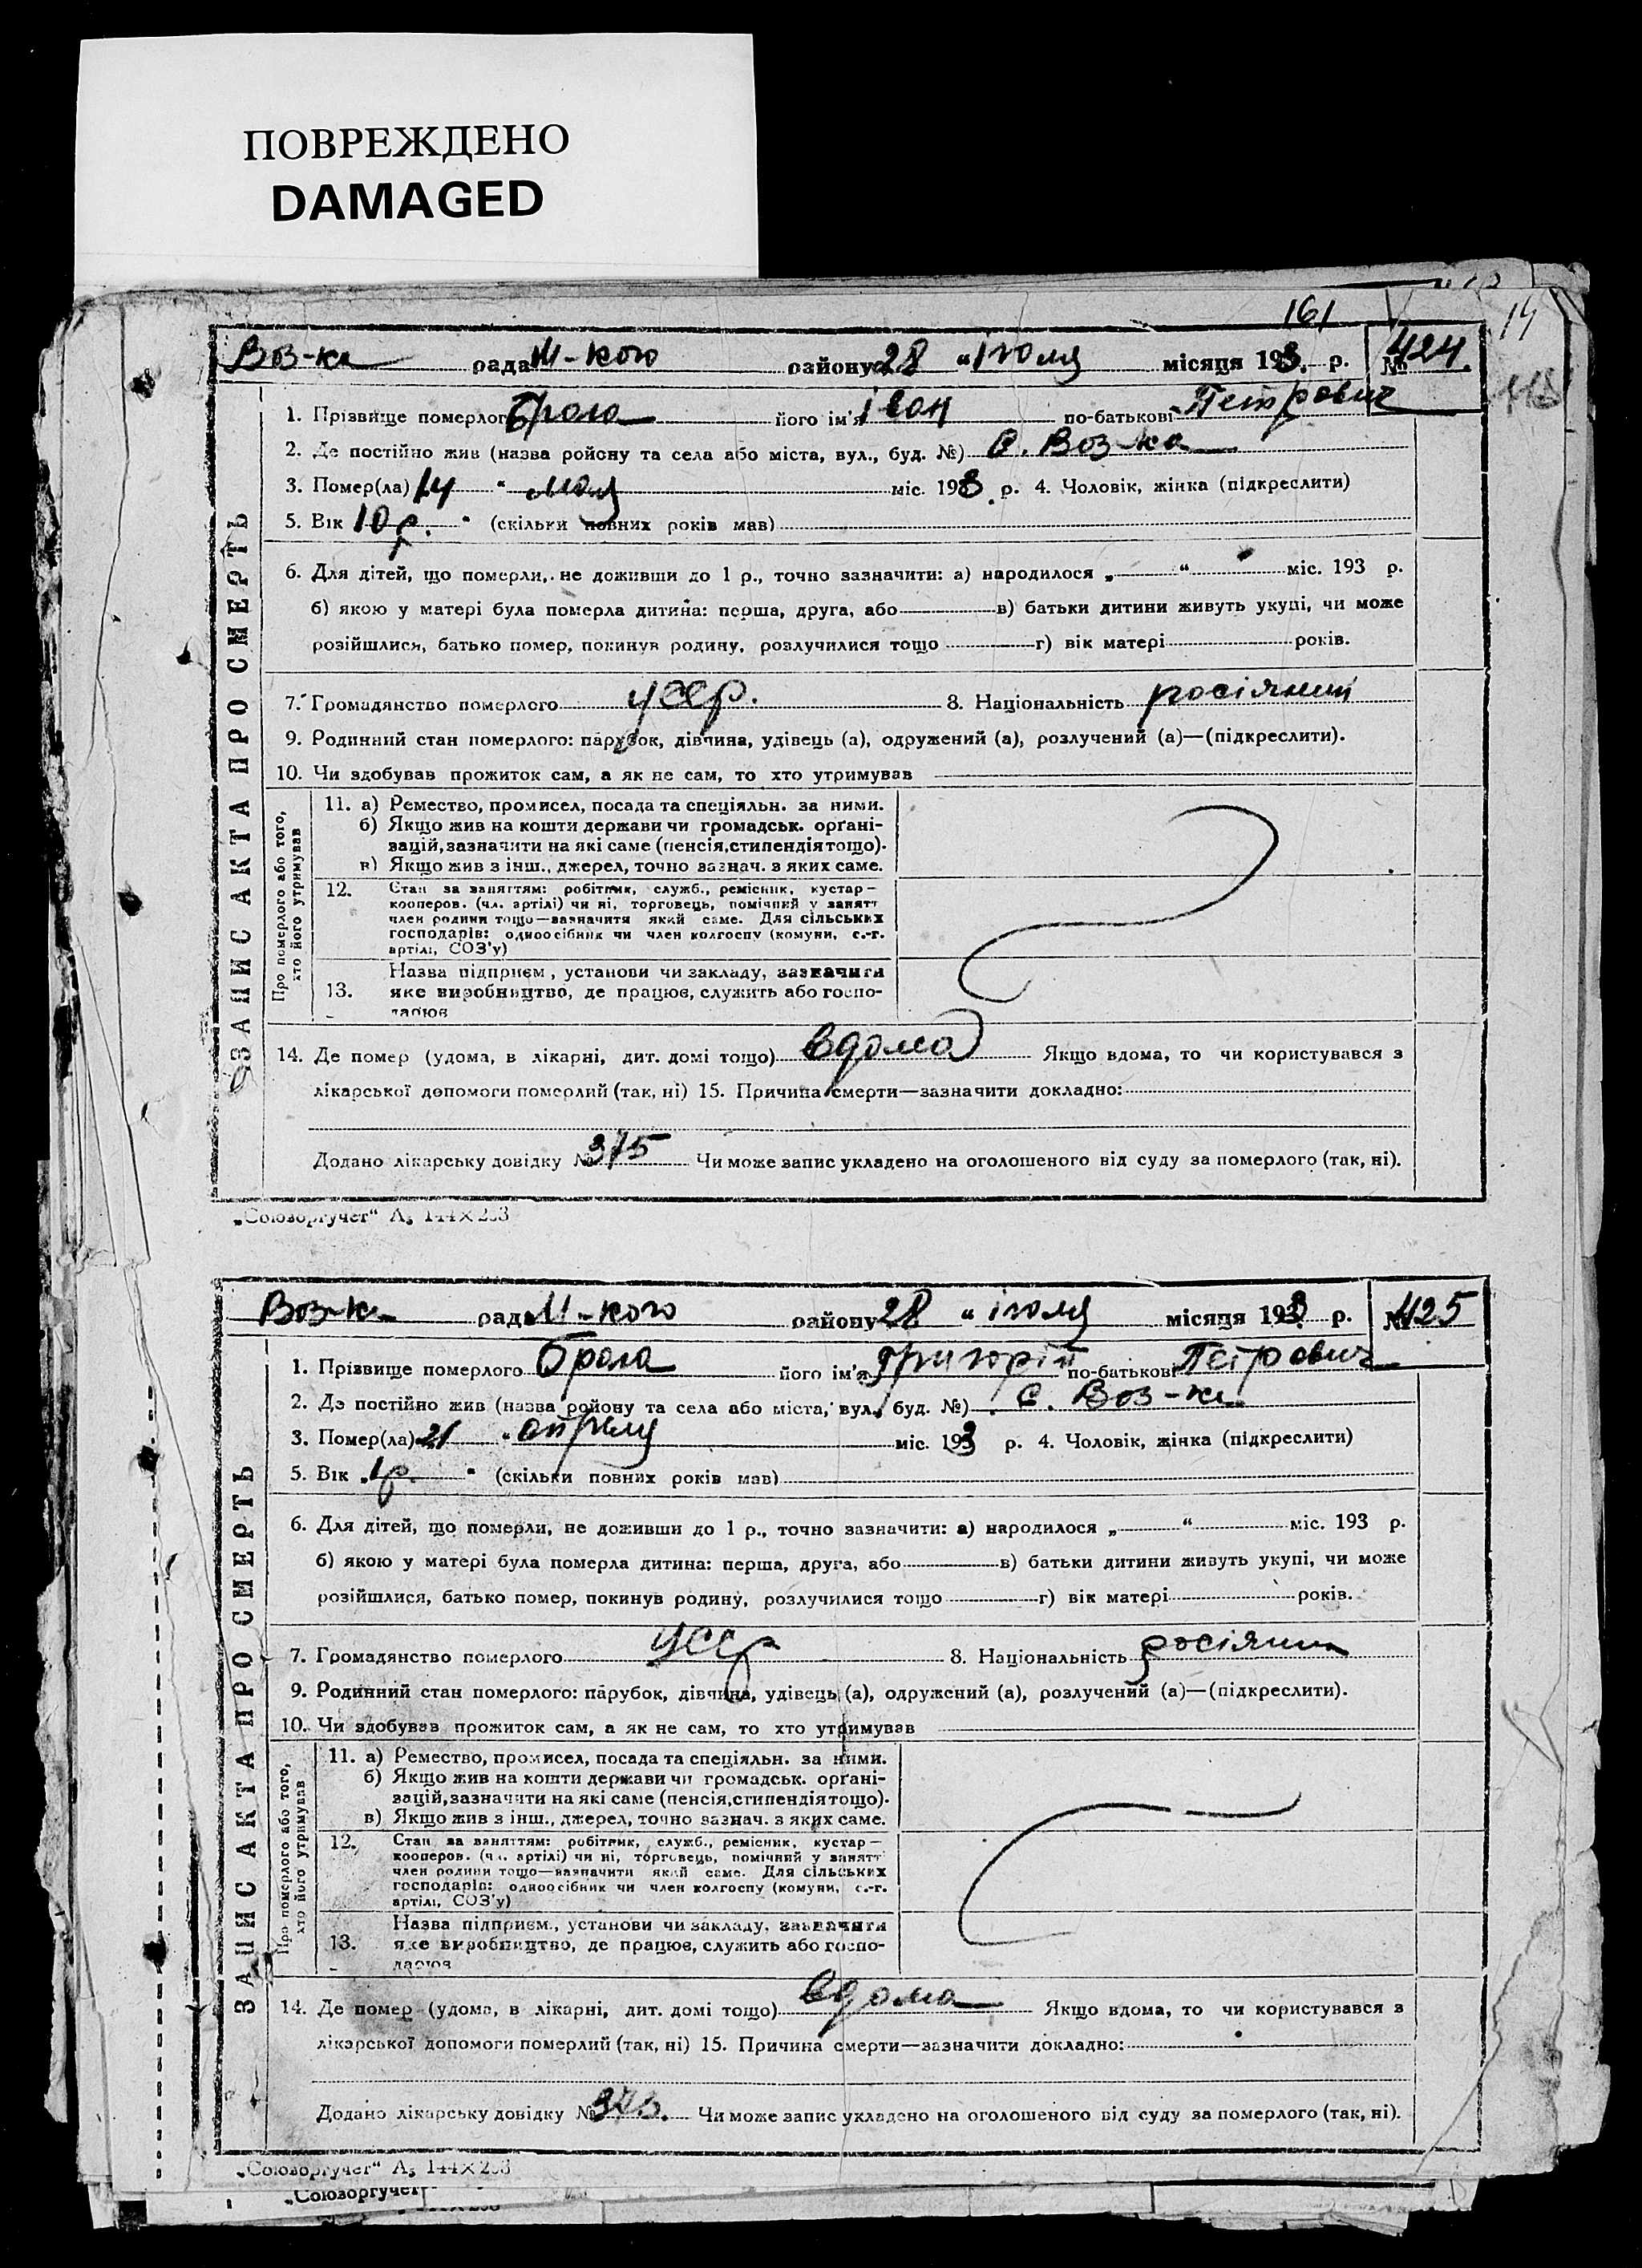 ПОВРЕЖДЕНО
DAMAGED
161
14
Воз-ка рада М-кого району 28 " Іюля місяця 193 3. р. № 424.
1. Прізвище померлого його ім'я Іван по-батькові Петрович
2. Де постійно жив (назва ройону та села або міста, вул., буд. №) С. Воз-ка
3. Помер(ла) 14 " мая міс. 193 3 р. 4. Чоловік, жінка (підкреслити)
5. Вік 10 р. " (скільки повних років мав)
6. Для дітей, що померли, не доживши до 1 р., точно зазначити: а) народилося „ “ міс. 193 р.
б) якою у матері була померла дитина: перша, друга, або в) батьки дитини живуть укупі, чи може
розійшлися, батько помер, покинув родину, розлучилися тощо г) вік матері років.
7. Громадянство померлого УССР. 8. Національність росіянин
9. Родинний стан померлого: парубок, дівчина, удівець (а), одружений (а), розлучений (а)—(підкреслити).
10. Чи здобував прожиток сам, а як не сам, то хто утримував
ЗАПИС АКТА ПРО СМЕРТЬ
Про померлого або того, хто його утримував
11. а) Ремество, промисел, посада та спеціяльн. за ними.
б) Якщо жив на кошти держави чи громадськ. орґані-
зацій, зазначити на які саме (пенсія, стипендія тощо).
в) Якщо жив з інш., джерел, точно зазнач. з яких саме.
12. Стан за заняттям: робітник, служб., ремісник, кустар—
кооперов. (чл. артілі) чи ні, торговець, помічний у занятт
член родини тощо—зазначити який саме. Для сільських
господарів: одноосібник чи член колгоспу (комуни, с.-г.
артілі, СОЗ'у)
Назва підприєм., установи чи закладу, зазначити
13. яке виробництво, де працює, служить або госпо-
дарює
14. Де помер (удома, в лікарні, дит. домі тощо) вдома Якщо вдома, то чи користувався з
лікарської допомоги померлий (так, ні) 15. Причина смерти—зазначити докладно:
Додано лікарську довідку № 375 Чи може запис укладено на оголошеного від суду за померлого (так, ні).
„Союзоргучет“ А₅ 144×203
Воз-ка рада М-кого району 28 " іюля місяця 193 3. р. № 425
1. Прізвище померлого його ім'я Григорій по-батькові Петрович
2. Де постійно жив (назва ройону та села або міста, вул., буд. №) С. Воз-ка
3. Помер(ла) 21 " апреля міс. 193 3 р. 4. Чоловік, жінка (підкреслити)
5. Вік 1 р. " (скільки повних років мав)
6. Для дітей, що померли, не доживши до 1 р., точно зазначити: а) народилося „ “ міс. 193 р.
б) якою у матері була померла дитина: перша, друга, або в) батьки дитини живуть укупі, чи може
розійшлися, батько помер, покинув родину, розлучилися тощо г) вік матері років.
7. Громадянство померлого УССР 8. Національність росіянин
9. Родинний стан померлого: парубок, дівчина, удівець (а), одружений (а), розлучений (а)—(підкреслити).
10. Чи здобував прожиток сам, а як не сам, то хто утримував
ЗАПИС АКТА ПРО СМЕРТЬ
Про померлого або того, хто його утримував
11. а) Ремество, промисел, посада та спеціяльн. за ними.
б) Якщо жив на кошти держави чи громадськ. орґані-
зацій, зазначити на які саме (пенсія, стипендія тощо).
в) Якщо жив з інш., джерел, точно зазнач. з яких саме.
12. Стан за заняттям: робітник, служб., ремісник, кустар—
кооперов. (чл. артілі) чи ні, торговець, помічний у занятт
член родини тощо—зазначити який саме. Для сільських
господарів: одноосібник чи член колгоспу (комуни, с.-г.
артілі, СОЗ'у)
Назва підприєм., установи чи закладу, зазначити
13. яке виробництво, де працює, служить або госпо-
дарює
14. Де помер (удома, в лікарні, дит. домі тощо) вдома Якщо вдома, то чи користувався з
лікарської допомоги померлий (так, ні) 15. Причина смерти—зазначити докладно:
Додано лікарську довідку № Чи може запис укладено на оголошеного від суду за померлого (так, ні).
„Союзоргучет“ А₅ 144×203
„Союзоргучет